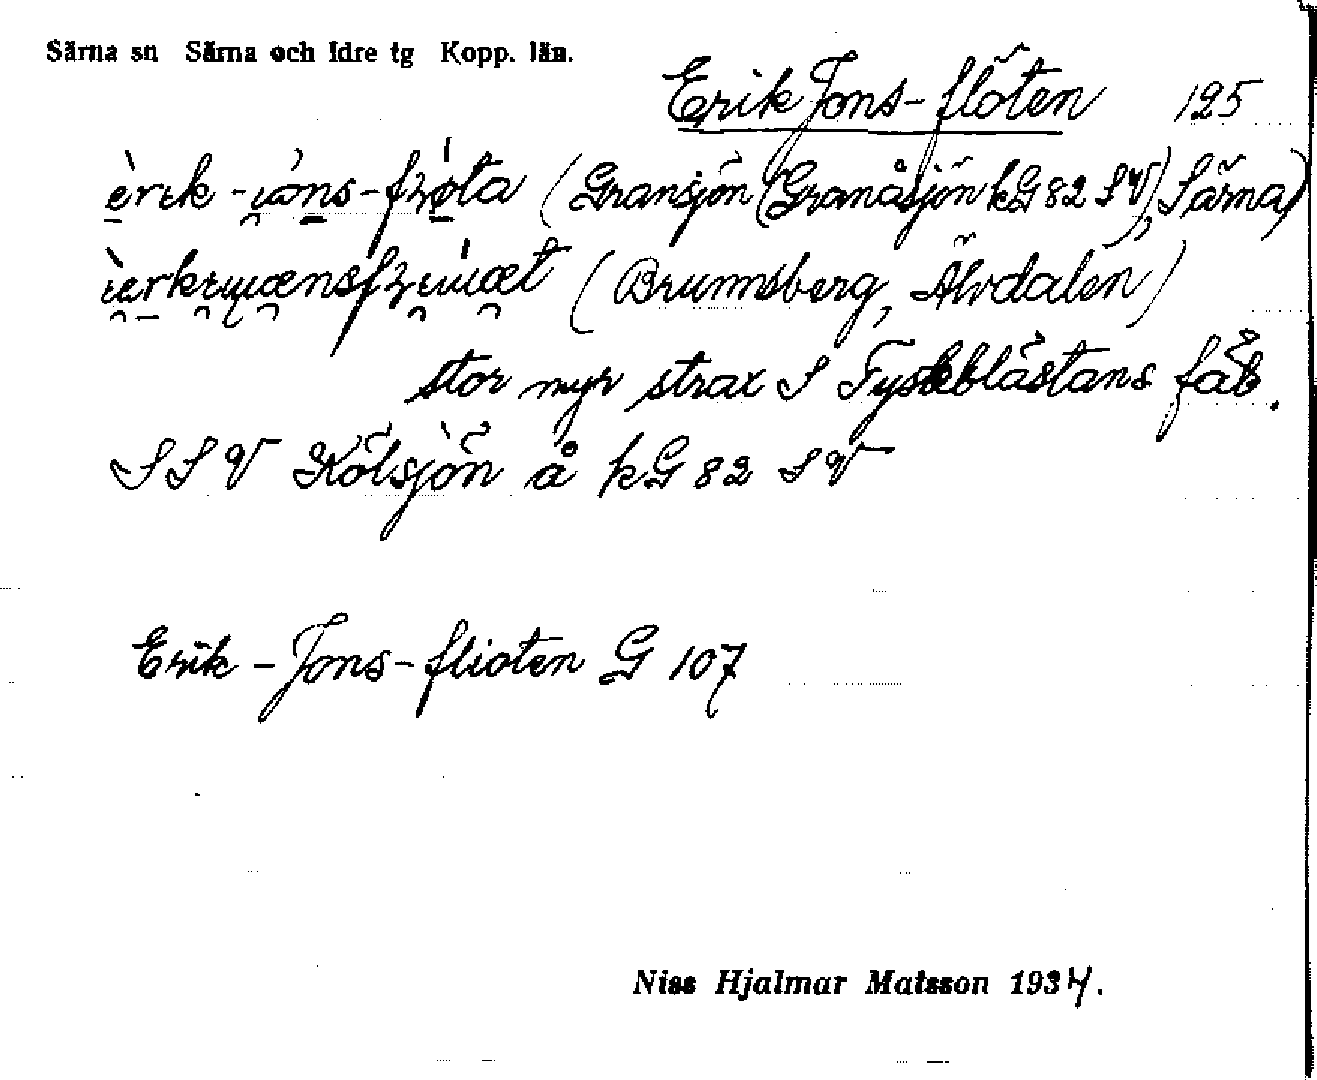 Särna sn Särna och Idre tg Kopp. län.
Erik Jons-flöten 125
(Gransjön (Granåsjön kG 82 SV), Särna)
(Brunnsberg, Älvdalen)
stor myr strax S Fyskblåstans fäb.
SSV Kölsjön å kG 82 SV
Erik-Jons-flioten G 107
Niss Hjalmar Matsson 1934.